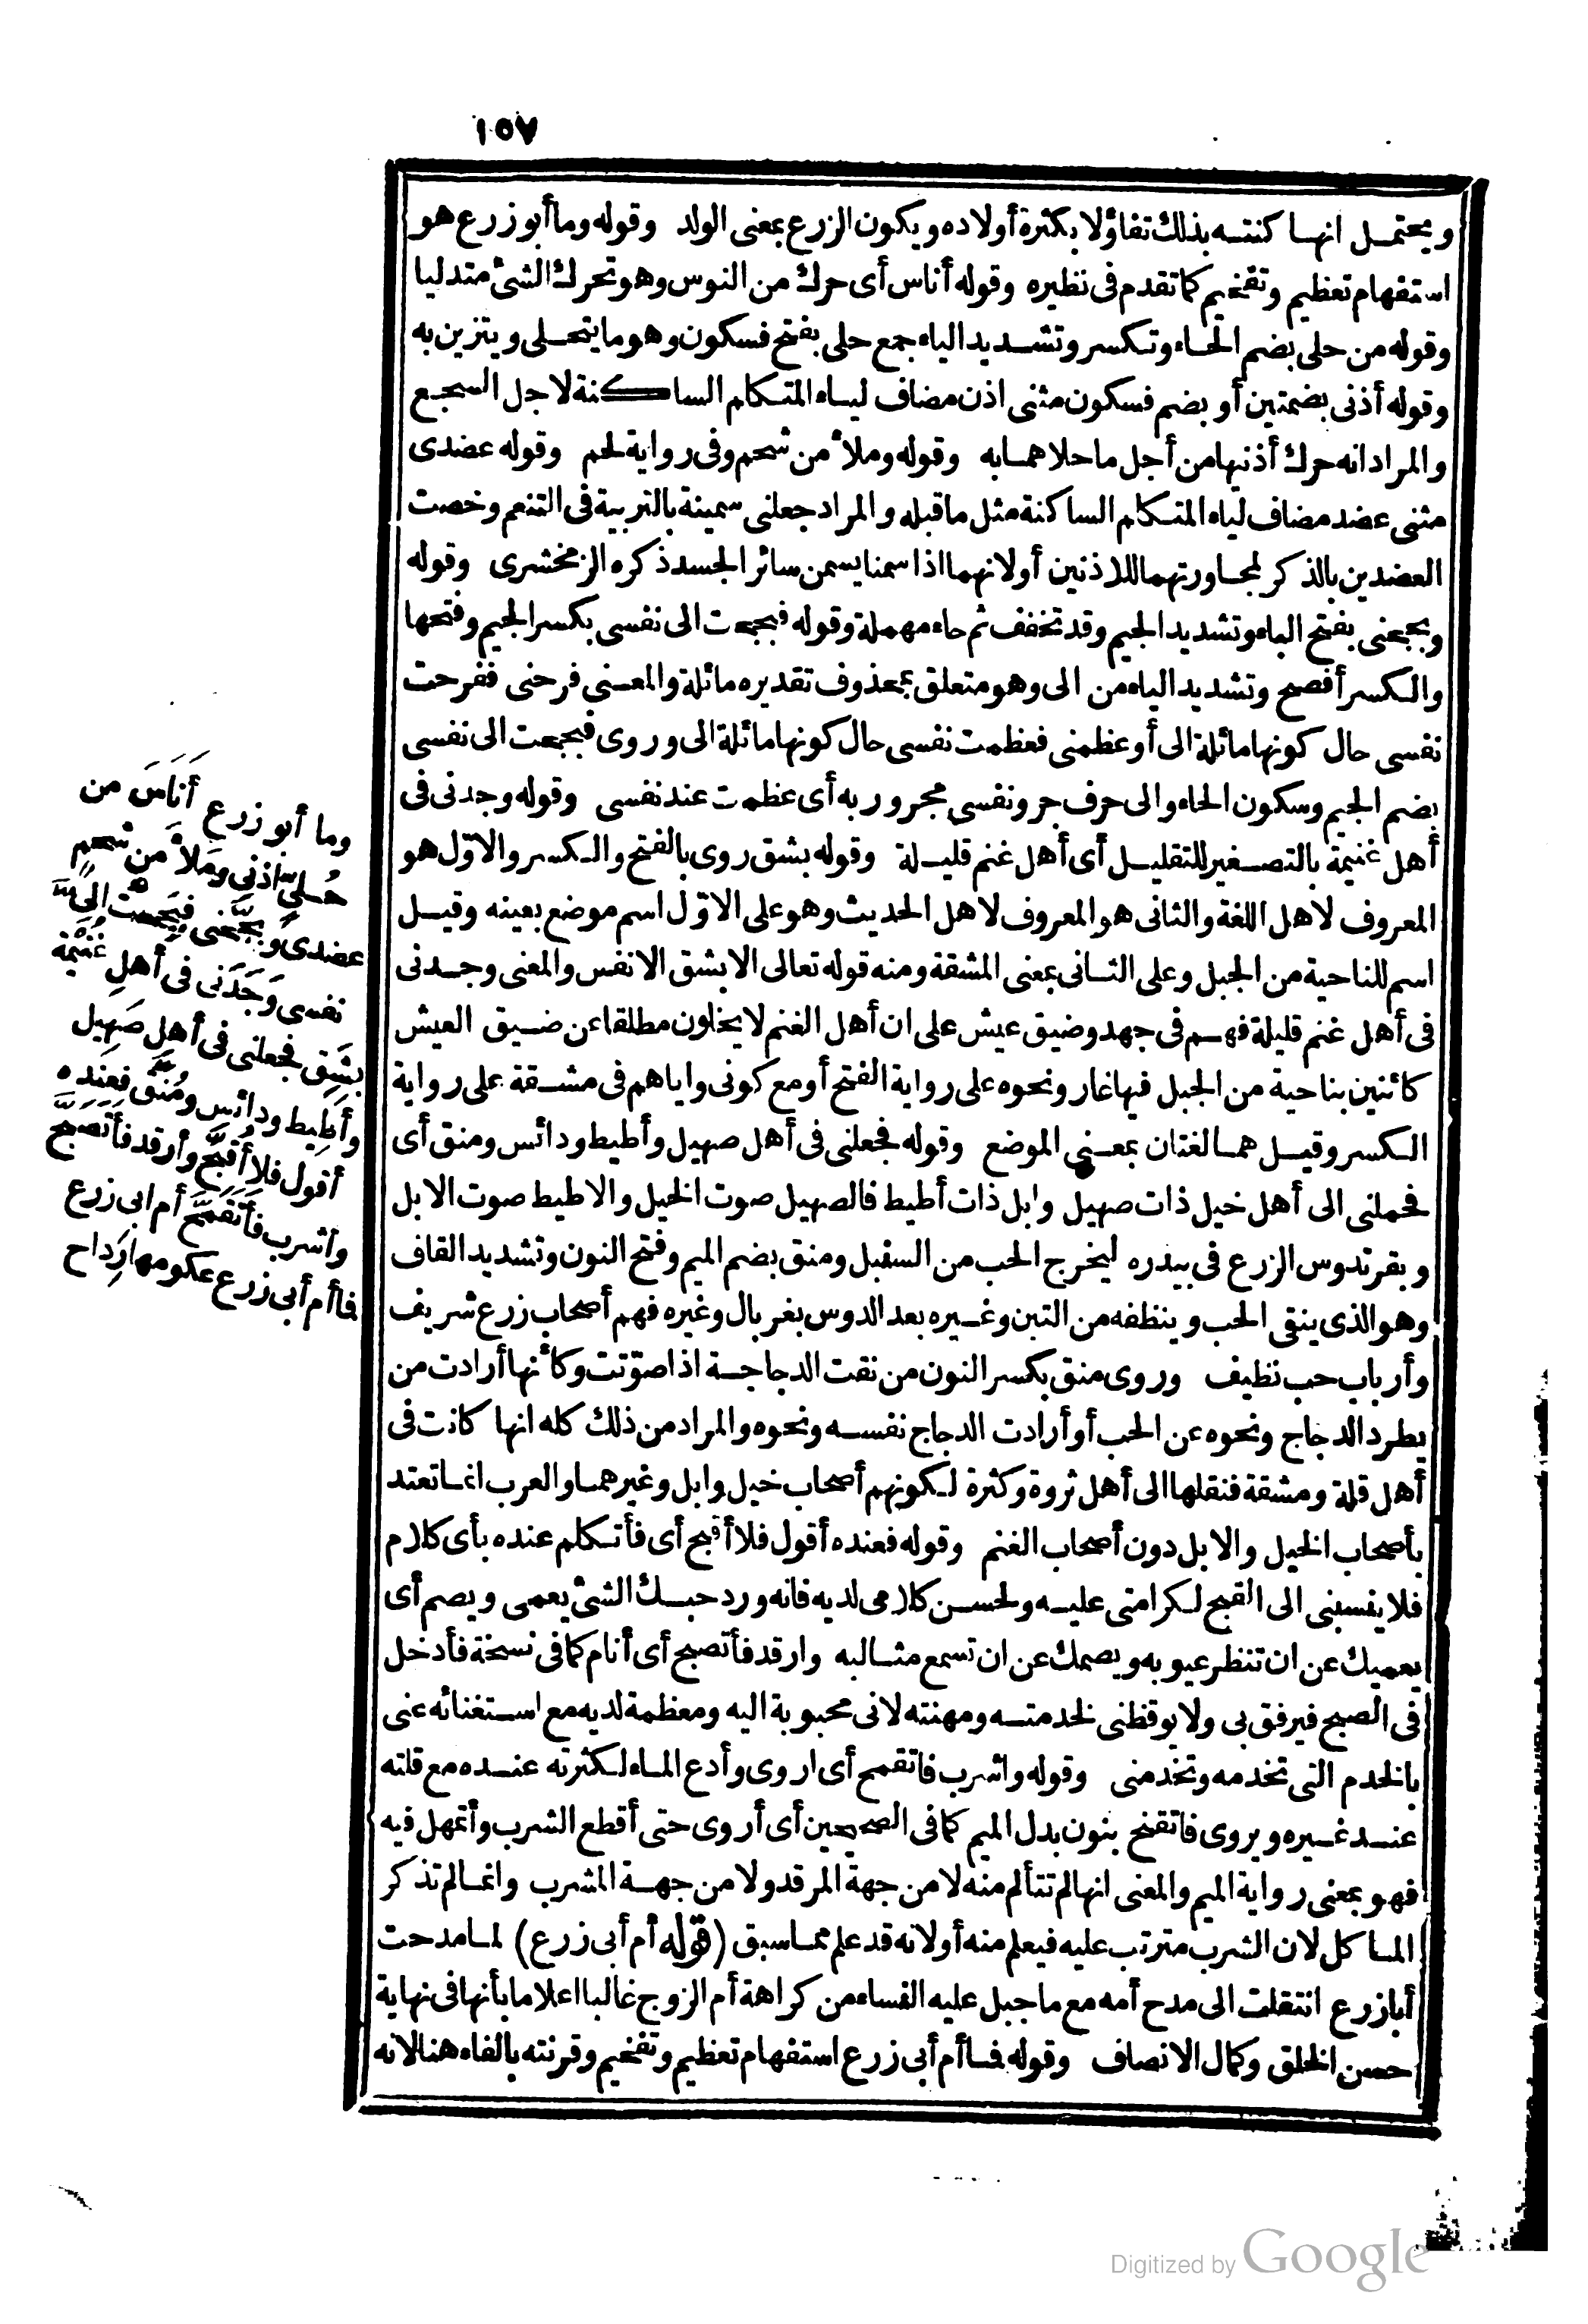 ١٥٧
ويحتمل انها كنته بذلك تفاؤلا بكثرة أولاده ويكون الزرع بمعنى الولد وقوله وما أبو زرع هو
استفهام تعظيم وتفخيم كما تقدم فى نظيره وقوله أناس أى حرك من النوس وهو تحرك الشئ متدليا
وقوله من حلى بضم الحاء وتكسر وتشديد الياء جمع حلى بفتح فسكون وهو ما يتحلى ويتزين به
وقوله أذنى بضمتين أو بضم فسكون مثنى اذن مضاف لياء المتكلم الساكنة لاجل السجع
والمراد انه حرك أذنيها من أجل ما حلاهما به وقوله وملأ من شحم وفى رواية لحم وقوله عضدى
مثنى عضد مضاف لياء المتكلم الساكنة مثل ما قبله والمراد جعلنى سمينة بالتربية فى التنعم وخصت
العضدين بالذكر لمجاورتهما للاذنين أولانهما اذا سمنا يسمن سائر الجسد ذكره الزمخشرى وقوله
وبجحنى بفتح الباء وتشديد الجيم وقد تخفف ثم حاء مهملة وقوله فبجحت الى نفسى بكسر الجيم وفتحها
والكسر أفصح وتشديد الياء من الى وهو متعلق بمحذوف تقديره مائلة والمعنى فرحنى ففرحت
نفسى حال كونها مائلة الى أو عظمنى فعظمت نفسى حال كونها مائلة الى وروى فبجحت الى نفسى
بضم الجيم وسكون الحاء والى حرف جر ونفسى مجرور به أى عظمت عند نفسى وقوله وجدنى فى
أهل غنيمة بالتصغير للتقليل أى أهل غنم قليلة وقوله بشق روى بالفتح والكسر والاوّل هو
المعروف لاهل اللغة والثانى هو المعروف لاهل الحديث وهو على الاوّل اسم موضع بعينه وقيل
اسم للناحية من الجبل وعلى الثانى بمعنى المشقة ومنه قوله تعالى الا بشق الانفس والمعنى وجدنى
فى أهل غنم قليلة فهم فى جهد وضيق عيش على ان أهل الغنم لا يخلون مطلقا عن ضيق العيش
كائنين بناحية من الجبل فيها غار ونحوه على رواية الفتح أو مع كونى واياهم فى مشقة على رواية
الكسر وقيل هما لغتان بمعنى الموضع وقوله فجعلنى فى أهل صهيل وأطيط ودائس ومنق أى
فحملنى الى أهل خيل ذات صهيل وابل ذات أطيط فالصهيل صوت الخيل والاطيط صوت الابل
وبقر تدوس الزرع فى بيدره ليخرج الحب من السنبل ومنق بضم الميم وفتح النون وتشديد القاف
وهو الذى ينقى الحب وينظفه من التبن وغيره بعد الدوس بغربال وغيره فهم أصحاب زرع شريف
وأرباب حب نظيف وروى منق بكسر النون من نقت الدجاجة اذا صوّتت وكأنها أرادت من
يطرد الدجاج ونحوه عن الحب أو أرادت الدجاج نفسه ونحوه والمراد من ذلك كله انها كانت فى
أهل قلة ومشقة فنقلها الى أهل ثروة وكثرة لكونهم أصحاب خيل وابل وغيرهما والعرب انما تعتد
بأصحاب الخيل والابل دون أصحاب الغنم وقوله فعنده أقول فلا أقبح أى فأتكلم عنده بأى كلام
فلا ينسبنى الى القبح لكرامتى عليه ولحسن كلامى لديه فانه ورد حبك الشئ يعمى ويصم أى
يعميك عن ان تنظر عيوبه ويصمك عن ان تسمع مثالبه وارقد فأتصبح أى أنام كما فى نسخة فأدخل
فى الصبح فيرفق بى ولا يوقظنى لخدمته ومهنته لانى محبوبة اليه ومعظمة لديه مع استغنائه عنى
بالخدم التى تخدمه وتخدمنى وقوله واشرب فاتقمح أى اروى وأدع الماء لكثرته عنده مع قلته
عند غيره ويروى فاتقنح بنون بدل الميم كما فى الصحيحين أى أروى حتى أقطع الشرب وأتمهل فيه
فهو بمعنى رواية الميم والمعنى انها لم تتألم منه لا من جهة المرقد ولا من جهة المشرب وانما لم تذكر
الماكل لان الشرب مترتب عليه فيعلم منه أولانه قد علم مما سبق (قوله أم أبى زرع) لما مدحت
أبا زرع انتقلت الى مدح أمه مع ما جبل عليه النساء من كراهة أم الزوج غالبا اعلاما بأنها فى نهاية
حسن الخلق وكمال الانصاف وقوله فما أم أبى زرع استفهام تعظيم وتفخيم وقرنته بالفاء هنا لانه
وما أبو زرع أَنَاسَ من
حُلىّ اذنى وملأ من شحم
عضدىّ وبجّحنى فبجحت الىّ
نفسى وَجَدَنى فى أهلِ غُنَيْمَة
بشِقٍ فجعلنى فى أهل صَهِيل
وأَطِيط ودائس ومُنَقٍّ فعنده
أقول فلا أُقَبَّح وأرقد فأتَصَبَّح
واشرب فَأَتَقَمَّح أم ابى زرع
فما أم أبى زرع عكومها رَداح
Digitized by Google